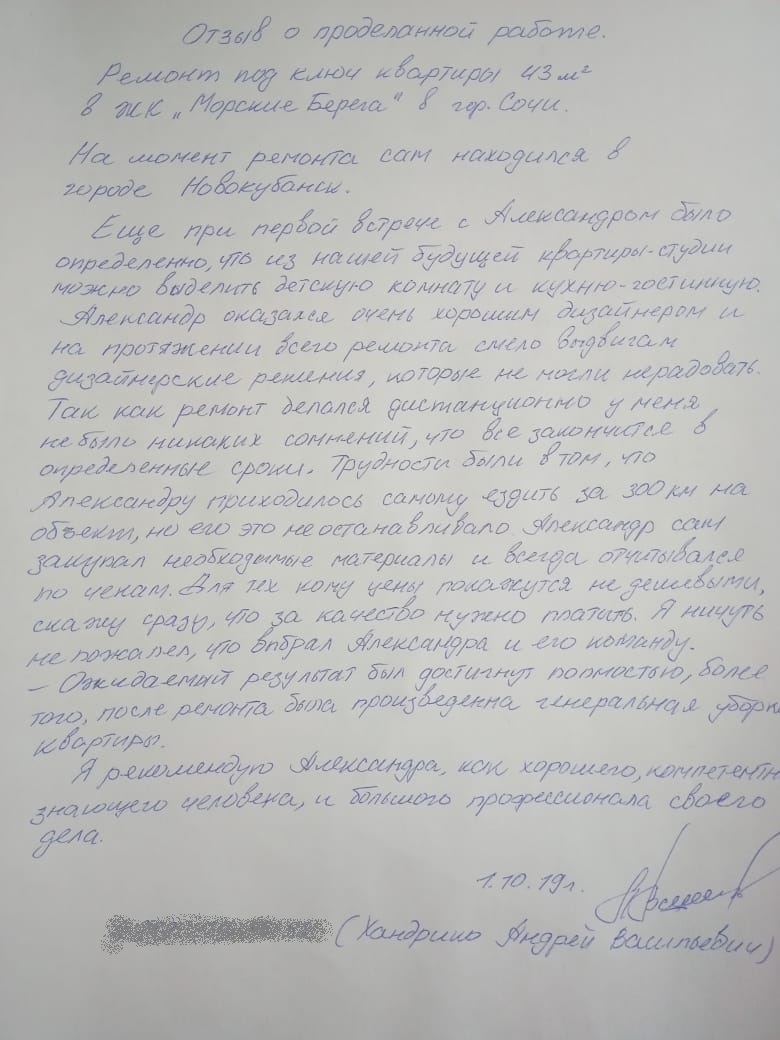 Отзыв о проделанной работе.
Ремонт под ключ квартиры 43 м²
в ЖК „Морские Берега" в гор. Сочи.
На момент ремонта сам находился в
городе Новокубанск.
Еще при первой встрече с Александром было
определенно, что из нашей будущей квартиры-студии
можно выделить детскую комнату и кухню-гостинную.
Александр оказался очень хорошим дизайнером и
на протяжении всего ремонта смело выдвигал
дизайнерские решения, которые не могли нерадовать.
Так как ремонт делался дистанционно у меня
небыло никаких сомнений, что все закончится в
определенные сроки. Трудности были в том, что
Александру приходилось самому ездить за 300 км на
объект, но его это неостанавливало. Александр сам
закупал необходимые материалы и всегда отчитывался
по чекам. Для тех кому цены покажутся не дешевыми,
скажу сразу, что за качество нужно платить. Я ничуть
не пожалел, что выбрал Александра и его команду.
– Ожидаемый результат был достигнут полностью, более
того, после ремонта была произведенна генеральная уборка
квартиры.
Я рекомендую Александра, как хорошего, компетентн
знающего человека, и большого профессионала своего
дела.
1.10.19г.
(Андрей Васильевич)